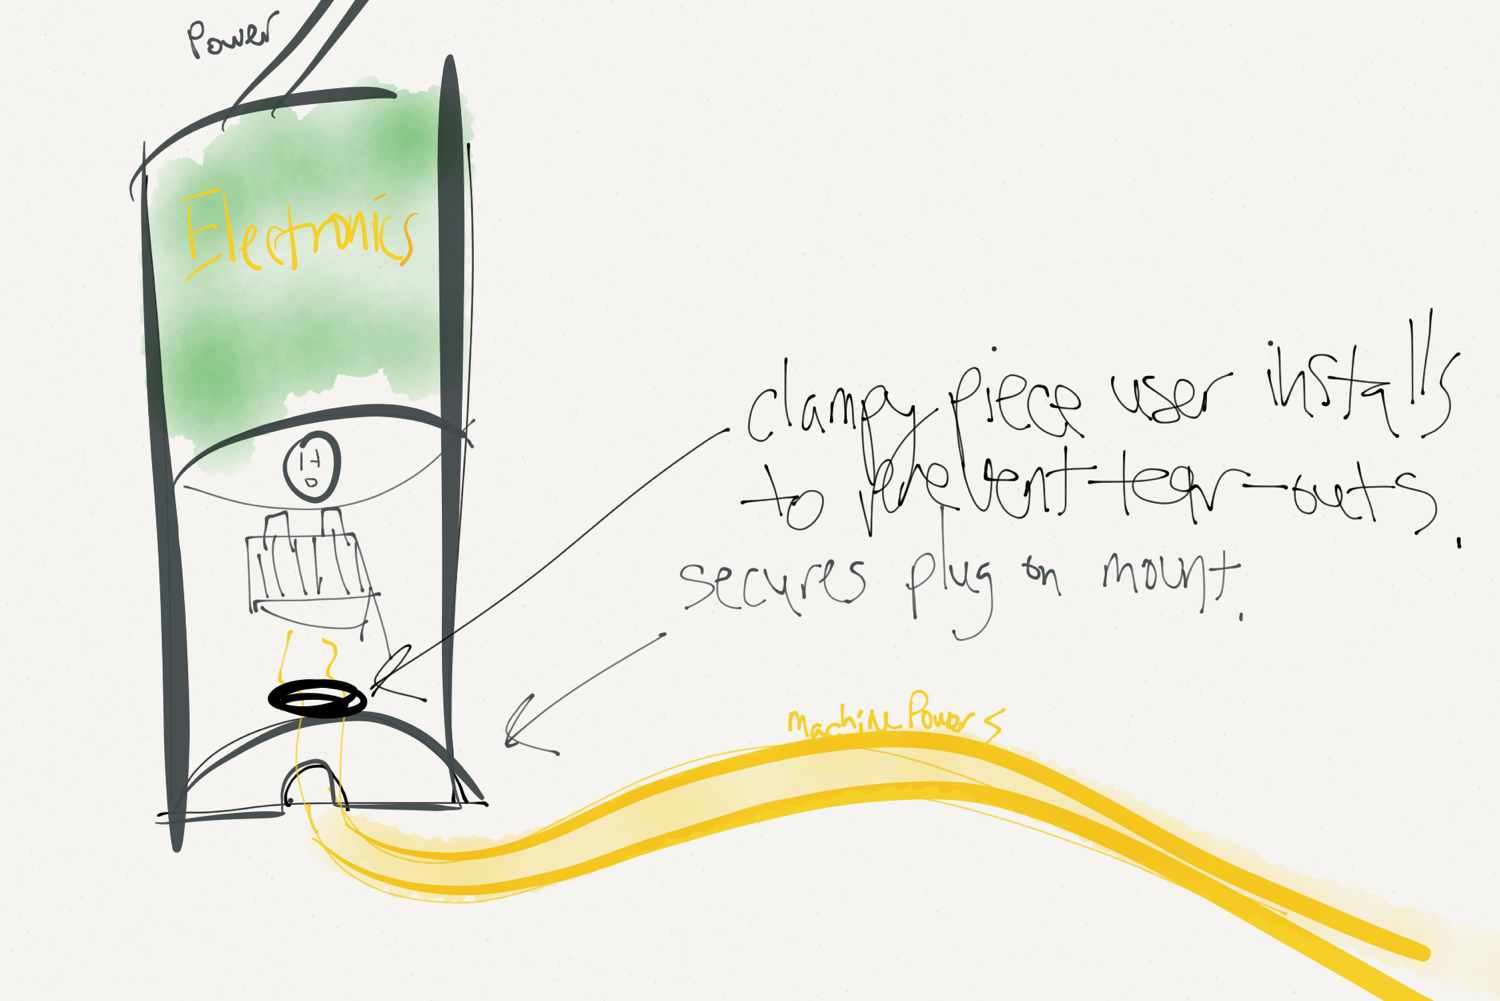 Power
Electronics
clampy piece user installs
to prevent tear-outs.
secures plug on mount.
machine Power